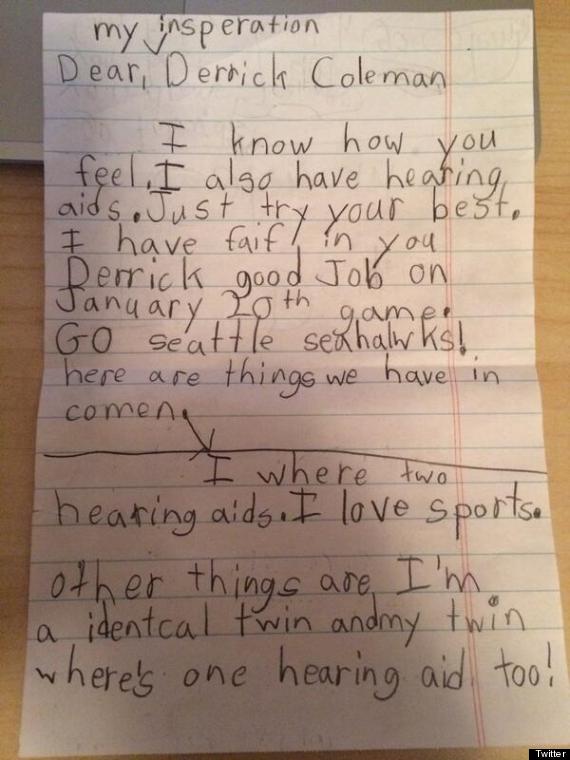 my insperation
Dear, Derrick Coleman
I know how you
feel. I also have hearing
aids. Just try your best.
I have faif in you
Derrick good Job on
January 20th game.
GO seattle seahalwks!
here are things we have in
comen.
I where two
hearing aids. I love sports.
other things are, I'm
a identcal twin andmy twin
where's one hearing aid too!
Twitter